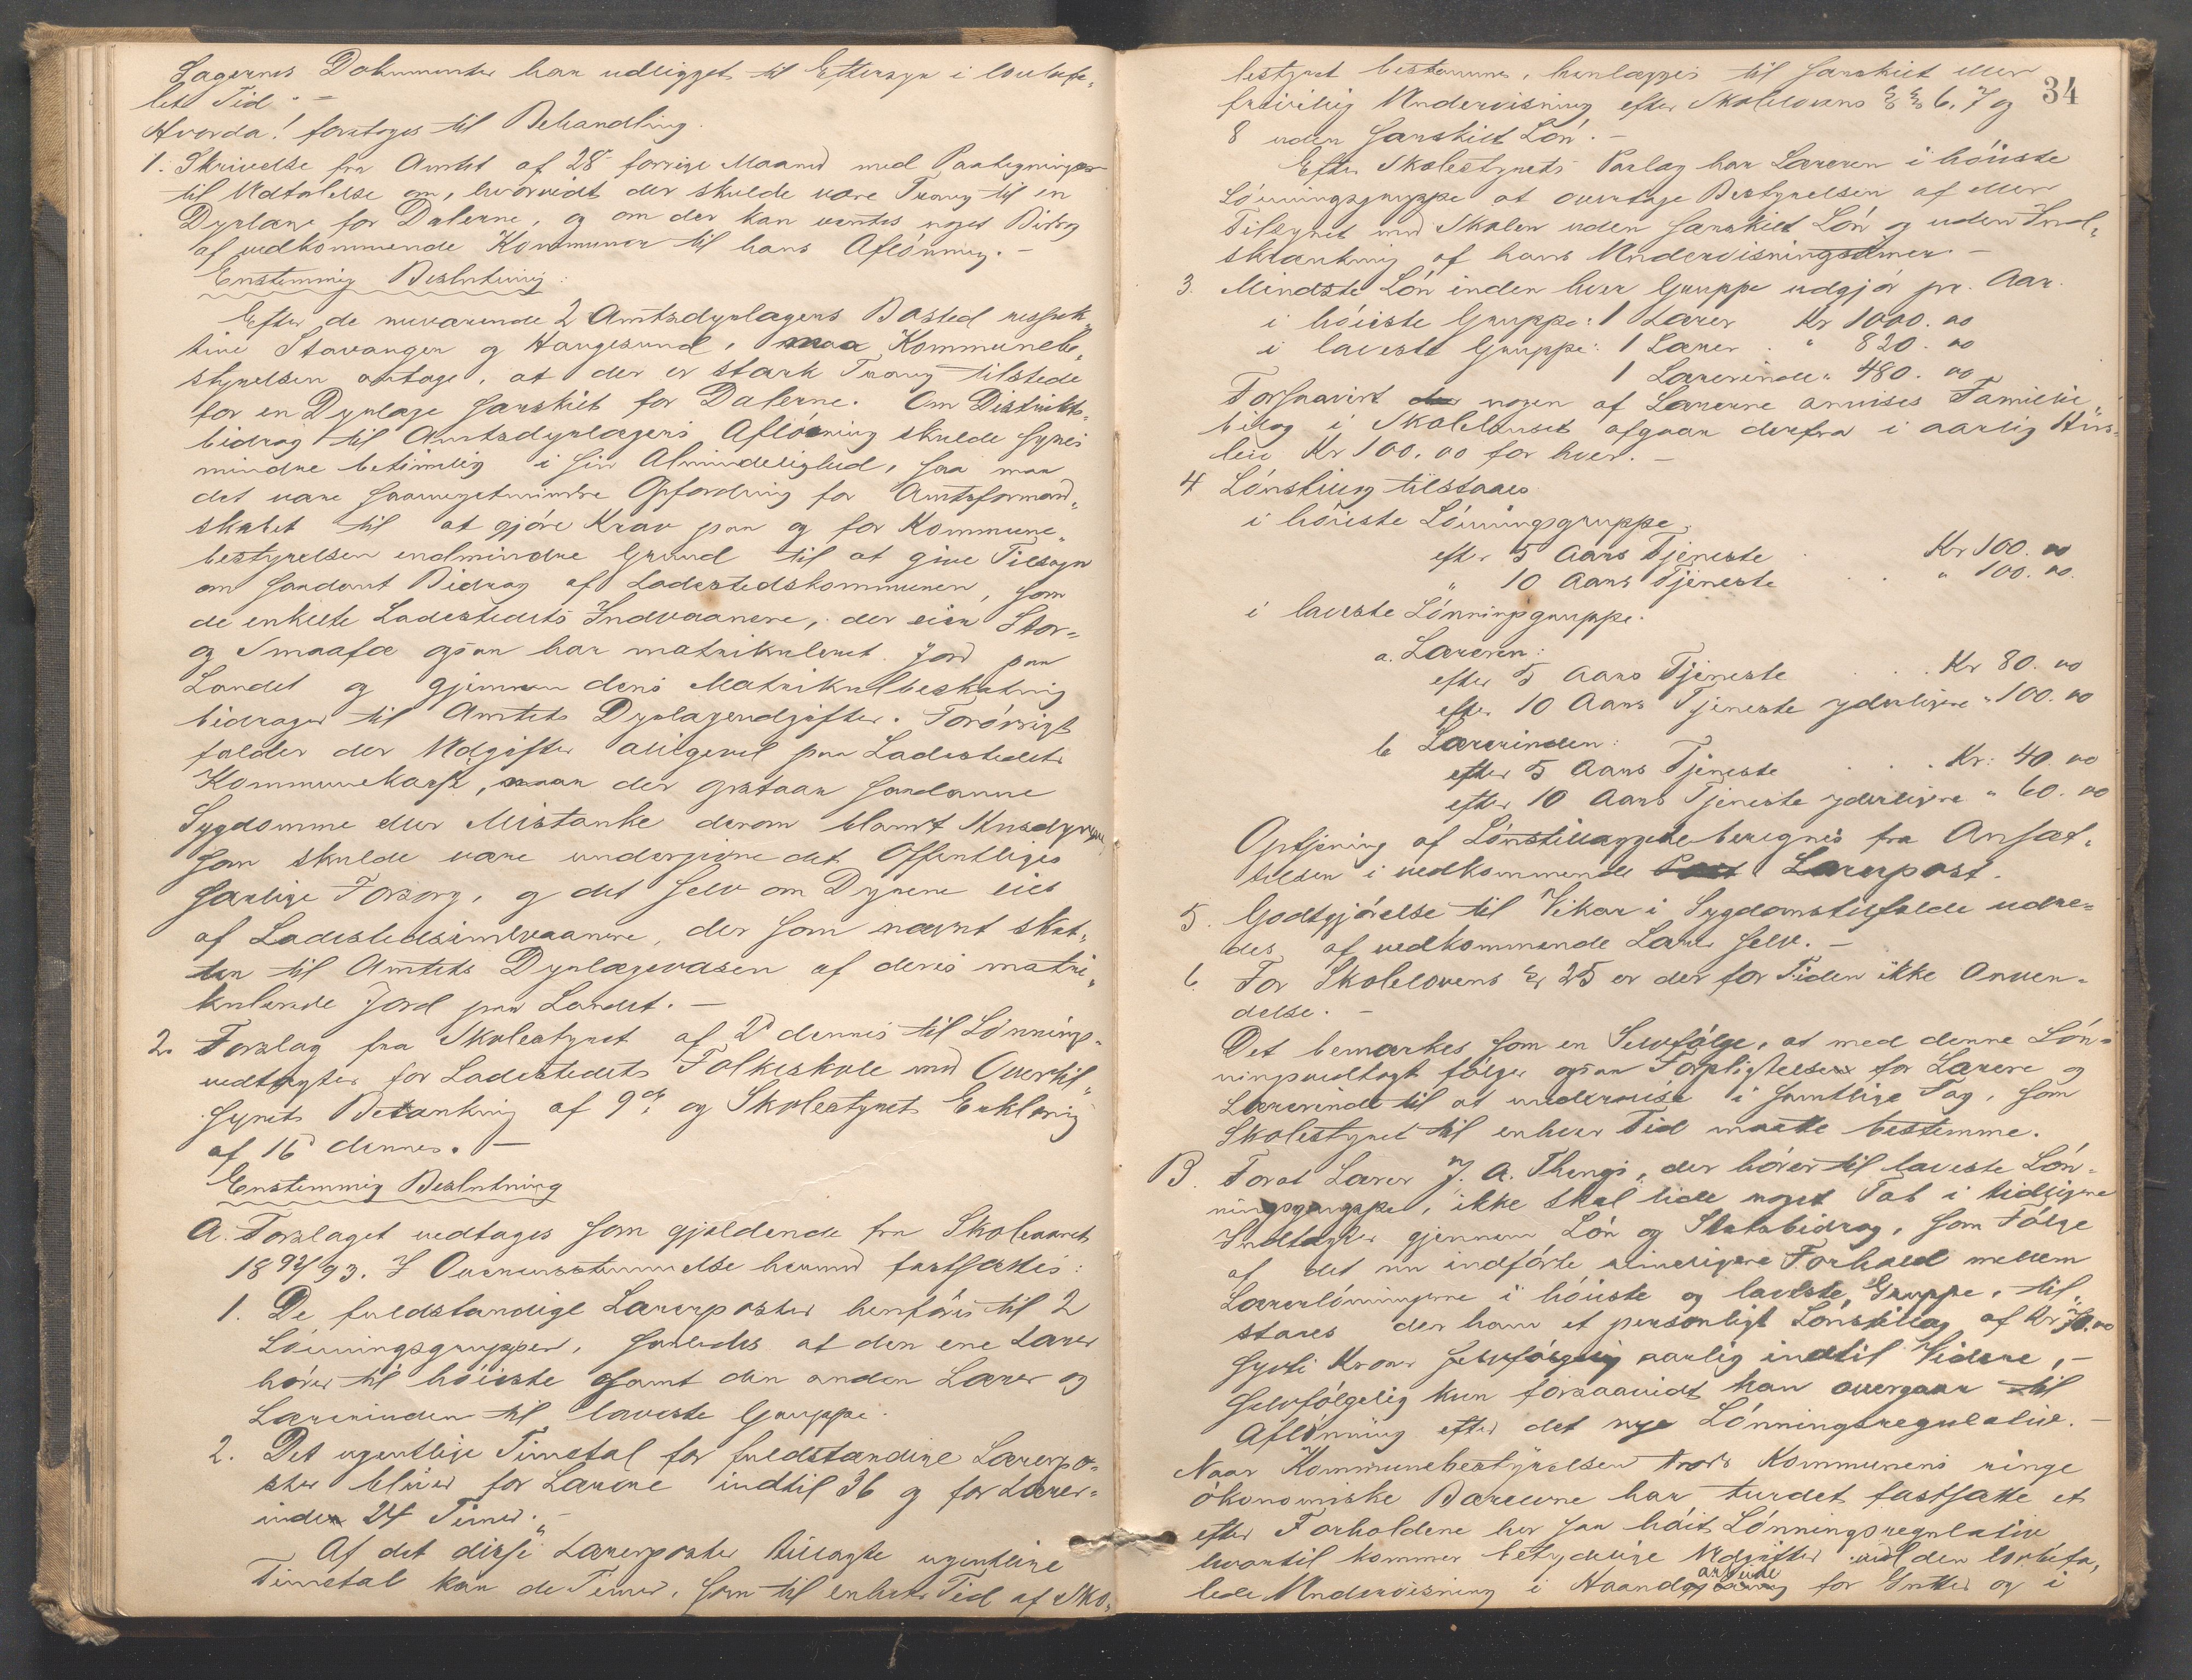 Sagernes Dokumenter har udligget til Eftersyn i lovbefa„
let Tid. –
Hvorda! foretoges til Behandling.
1. Skrivelse fra Amtet af 28de forrige Maaned med Paategninger
til Udtalelse om, hvorvidt der skulde være Trang til en
Dyrlæge for Dalerne, og om der kan ventes noget Bidrag
af vedkommende Kommuner til hans Aflønning. –
Enstemmig Beslutning:
Efter de nuværende 2 Amtsdyrlægers Bosted respek„
tive Stavanger og Haugesund, maa Kommunebe„
styrelsen antage, at der er stærk Trang tilstede
for en Dyrlæge særskilt for Dalerne. Om Distrikts„
bidrag til Amtsdyrlægers Aflønning skulde synes
mindre betimelig i sin Almindelighed, saa maa
det være saameget mindre Opfordring for Amtsformand„
skabet til at gjøre Krav paa og for Kommune„
bestyrelsen endmindre Grund til at give Tilsagn
om saadant Bidrag af Ladestedskommunen, som
de enkelte Ladestedets Indvaanere, der eier Stor=
og Smaafæ ogsaa har matrikuleret Jord paa
Landet og gjennem dens Matrikulbeskatning
bidrager til Amtets Dyrlægeudgifter. Forøvrigt
falder der Udgifter alligevel paa Ladestedets
Kommunekasse, naar der opstaar saadanne
Sygdomme eller Mistanke derom blandt Husdyrene,
som skulde være undergivne det Offentliges
særlige Forsorg, og det selv om Dyrene eies
af Ladestedsindvaanere, der som nævnt skat„
ter til Amtets Dyrlægevæsen af deres matri„
kulerede Jord paa Landet. –
2. Forslag fra Skolestyret af 2d dennes til Lønnings„
vedtægter for Ladestedets Folkeskole med Overtil„
synets Betænkning af 9de og Skolestyrets Erklæring
af 16d dennes. –
Enstemmig Beslutning
A. Forslaget vedtages som gjældende fra Skoleaaret
1892/93. I Overensstemmelse hermed fastsættes:
1. De fuldstændige Lærerposter henføres til 2
Lønningsgrupper, saaledes at den ene Lærer
hører til høieste samt den anden Lærer og
Lærerinden til laveste Gruppe.
2. Det ugentlige Timetal for fuldstændige Lærerpo„
ster bliver for Lærere indtil 36 og for Lærer=
inder 24 Timer. –
Af det disse Lærerposter tillagte ugentlige
Timetal kan de Timer, som til enhver Tid af Sko„
34
lestyret bestemmes, henlægges til særskilt eller
frivillig Undervisning efter Skolelovens §§ 6, 7 og
8 uden særskilt Løn. –
Efter Skolestyrets Paalæg har Læreren i høieste
Lønningsgruppe at overtage Bestyrelsen af eller
Tilsynet med Skolen uden særskilt Løn og uden Ind„
skrænkning af hans Undervisningstimer –
3. Mindste Løn inden hver Gruppe udgjør pr. Aar.
i høieste Gruppe: 1 Lærer Kr 1000.00
i laveste Gruppe: 1 Lærer . " 820.00
1 Lærerinde " 480.00
Forsaavidt der nogen af Lærerne anvises Familie„
bolig i Skolehuset afgaar derfra i aarlig Hus„
leie Kr 100.00 for hver. –
4 Lønstillæg tilstaaes
i høieste Lønningsgruppe:
efter 5 Aars Tjeneste . Kr 100.00
" 10 Aars Tjeneste . . " 100.00.
i laveste Lønningsgruppe:
a. Læreren:
efter 5 Aars Tjeneste . . Kr 80.00
efter 10 Aars Tjeneste yderligere " 100.00
b Lærerinden:
efter 5 Aars Tjeneste . . . Kr: 40.00
efter 10 Aars Tjeneste yderligere " 60.00
Optjening af Lønstillæggene beregnes fra Ansæt„
telsen i vedkommende Lærerpost.
5. Godtgjørelse til Vikar i Sygdomstilfælde udre=
des af vedkommende Lærer selv. –
6. For Skolelovens § 25 er der for Tiden ikke Anven=
delse. –
Det bemærkes som en Selvfølge, at med denne Løn=
ningsvedtægt følger ogsaa Forpligtelse for Lærere og
Lærerinde til at undervise i samtlige Fag, som
Skolestyret til enhver Tid maatte bestemme.
B. Forat Lærer J. A. Thengs, der hører til laveste Løn=
ningsgruppe, ikke skal lide noget Tab i tidligere
Indtægter gjennem Løn og Statsbidrag, som Følge
af det nu indførte rimeligere Forhold mellem
Lærerlønningerne i høieste og laveste Gruppe, til„
staaes der ham et personligt Lønstillæg af Kr 70.00
sytti Kroner aarlig indtil Videre, –
selvfølgelig kun forsaavidt han overgaar til
Aflønning efter det nye Lønningsregulativ. –
Naar Kommunebestyrelsen trods Kommunens ringe
økonomiske Bæreevne har turdet fastsætte et
efter Forholdene her saa høit Lønningsregulativ
hvortil kommer betydelige Udgifter ved den lovbefa„
lede Undervisning i Haandarbeide for Gutter og i